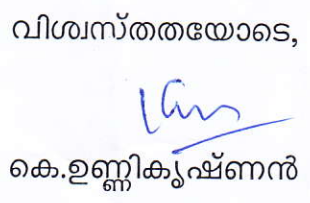 വിശ്വസ്തതയോടെ,
കെ.ഉണ്ണികൃഷ്ണൻ